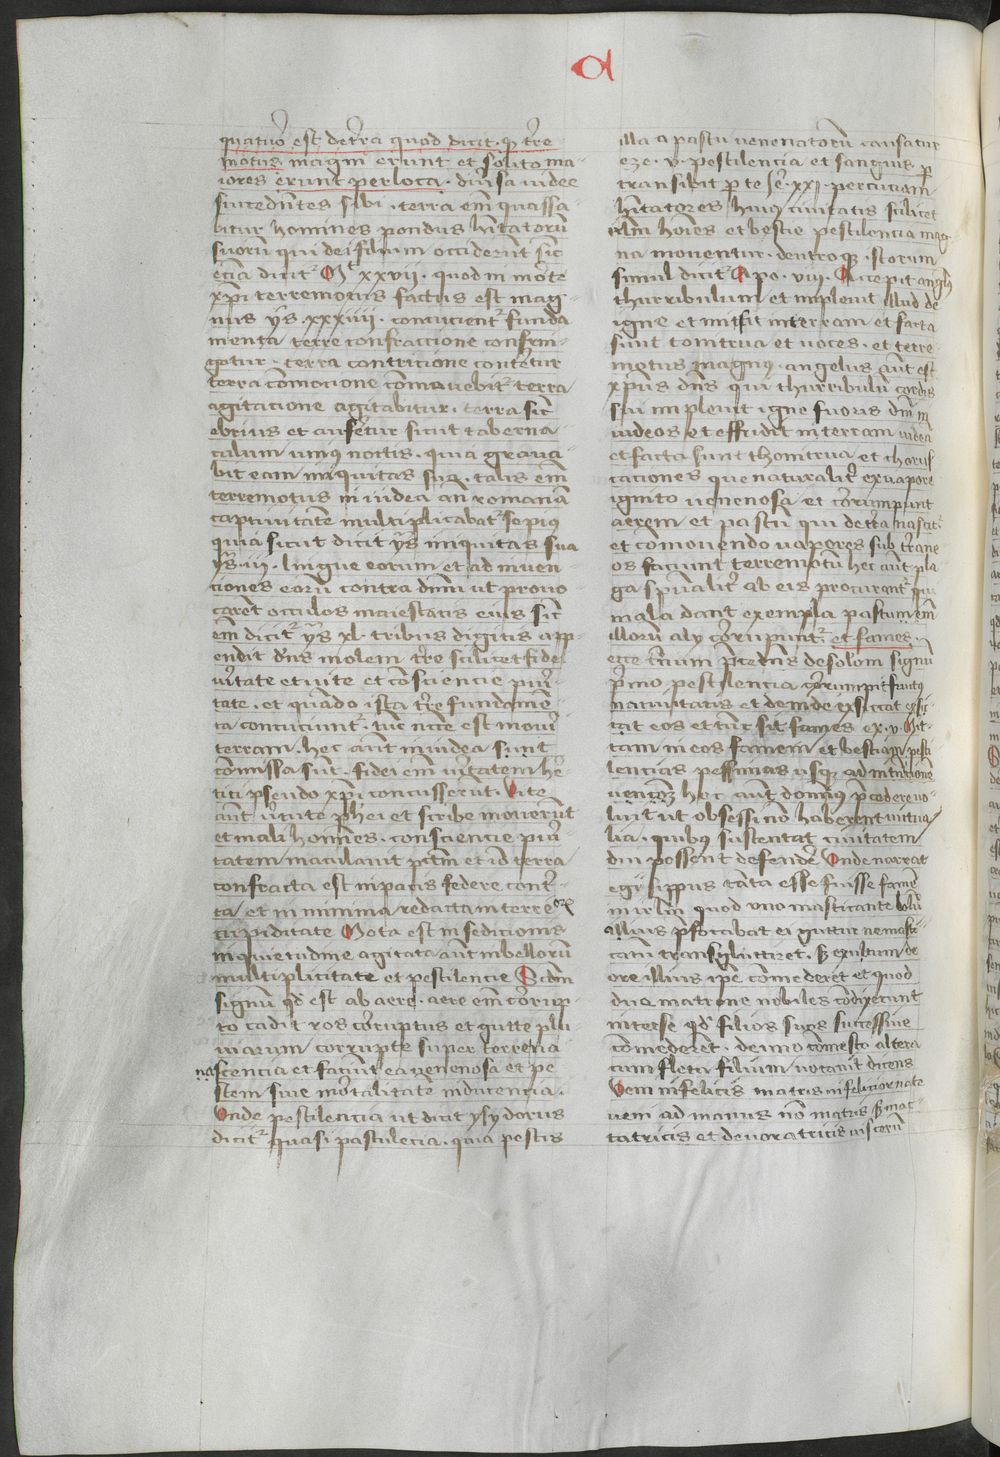 quatuor est de terra quod dicit. et terre
motus magni erunt et solito ma-
iores erunt per loca. diu'sa iudee
succedentes sibi. terra em̄ quassa-
bitur homines pondus hītatorū
suorū qui dei filium occiderūt sic̄
etiā dicit Mt xxvii. quod in morte
xp̄i terremotus factus est mag-
nus ys xxxiiii. concucient funda
menta terre confraccione confrin-
getur. terra contricione conteretur
terra cōmocione cōmouebit terra
agitacione agitabitur. terra sic̄
ebrius et auferetur sicut taberna-
culum unius noctis. quia graua-
bit eam iniquitas sua. talis em̄
terremotus in iudea an̄ romanā
captiuitatē multiplicabat sepius
quia sicut dicit ys iniquitas sua
ys iii. lingue eorum et adinuen-
ciones eorū contra dn̄m ut prouo-
carēt occulos maiestatis eius sic̄
em̄ dicit ys xl. tribus digitis app-
endit dn̄s molem terre scilicet fidei
u'itate et uite et consciencie puri-
tate. et quādo ista terre fundamē-
ta concuciunt. tūc n̄cce est moueri
terram. hec aūt in iudea sunt
cōmissa sūt. fidei em̄ u'itatem he-
tici pseudo xp̄i concusserūt. Vite
aūt u'tute ph'ei et scribe mouerūt
et mali homines. consciencie puri-
tatem maculauit pctm̄ et iō terra
confracta est in pacis federe contri-
ta et in minima redacta in terreox
cupiditate Mota est in sedicionis
inquietudine agitata aūt in bellorū
multiplicitate et pestilencie Scdm
signū qd est ab aere. aere em̄ corrup-
to cadit ros corruptus et gutte plu
uiarum corrupte super terrena
nascencia et faciūt ea uenenosa et pe
stem siue mortalitatē inducencia.
Vnde pestilencia ut dicit ysydorus
dicit quasi pastulecia. quia pestis
illa a pastu uenenatorū causatur
eze. v. pestilencia et sanguis p
transibit p te Ie. xxi. percuciam
hītatores huius ciuitatis scilicet
irlm hoīes et bestie pestilencia mag-
na mouentur. de utroque istorum
simul dicit Apo. viii. Accepit angl's
thurribulum et impleuit illud de
igne et misit in terram et facta
sunt tonitrua et uoces. et terre
motus magnus. angelus aūt est
xpus dn̄s qui thurribulū cordis
sui impleuit igne furoris diuini in
iudeos et effudit in terram iudea
et facta sunt thonitrua et chorus-
caciones que naturalit' ex uapore
ignito uenenosa et corrumpunt
aerem et pastū qui de terra nascit
et cōmouendo uapores sub terrane
os faciunt terremotū hec aūt pla
ga sp̄ualit' ab eis procurant qui
mala dant exempla pastum em̄
illorū aly corrupunt. et fames
ecce t'cium p̄cedens desolom̄ signū
primo pestilencia corrumpit fructus
natiuitatis et deinde exsiccat et sic-
cat eos et tūc sit fames ex. v. Mit-
tam in eos famem et bestias pesti
lencias pessimas usqz ad intencionē
uenczz hec aūt dominus p̄cedere uo-
luit ut obsessi nō haberent uictua
lia. quibus sustentat ciuitatem
diu possent defendere Vnde narrat
egisippus tāta esse fuisse famē
in irlm quod uno masticante bolū
alius p̄focabat ei guttur ne masti-
catū transglutiret. sz expulsum de
ore illius ipe cōmederet et quod
due matrone nobiles cōdixerunt
inter se qd' filios suos successiue
cōmederet. de uno cōmesto altera
cum fletu filium uocauit dicens
Veni infelicis matris infelicior nate
ueni ad manus nō matris sz mac-
tatricis et deuoratricis uiscerū